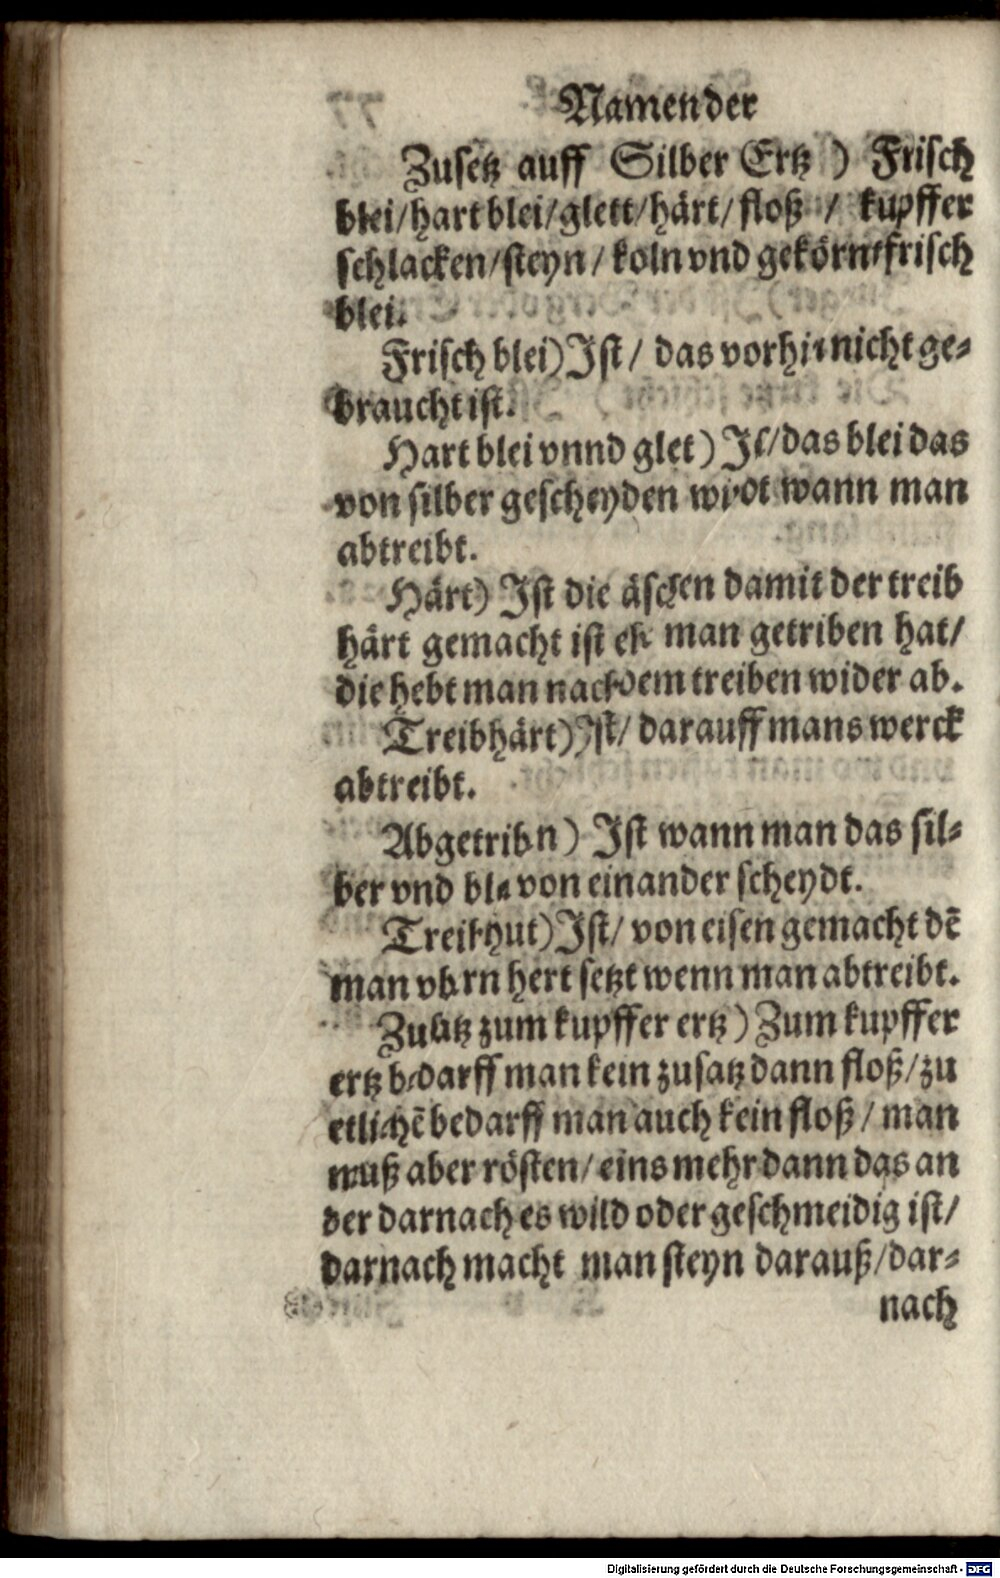 Namen der
Zusetz auff Silber Ertz ) Frisch
blei/hart blei/glett/härt/floß / kupffer
schlacken/steyn/koln vnd gekörnt frisch
blei.
Frisch blei) Ist/ das vorhin nicht ge-
braucht ist.
Hart blei vnnd glet) Ist/das blei das
von silber gescheyden wirdt wann man
abtreibt.
Härt) Ist die äschen damit der treib
härt gemacht ist eh man getriben hat/
die hebt man nach dem treiben wider ab.
Treibhärt) Ist/ darauff mans werck
abtreibt.
Abgetriben) Ist wann man das sil-
ber vnd blei von einander scheydt.
Treibhut) Ist/ von eisen gemacht dē
man vbern hert setzt wenn man abtreibt.
Zusatz zum kupffer ertz) Zum kupffer
ertz bedarff man kein zusatz dann floß/zu
etlichē bedarff man auch kein floß/ man
muß aber rösten/eins mehr dann das an
der darnach es wild oder geschmeidig ist/
darnach macht man steyn darauß/dar-
nach
Digitalisierung gefördert durch die Deutsche Forschungsgemeinschaft - DFG